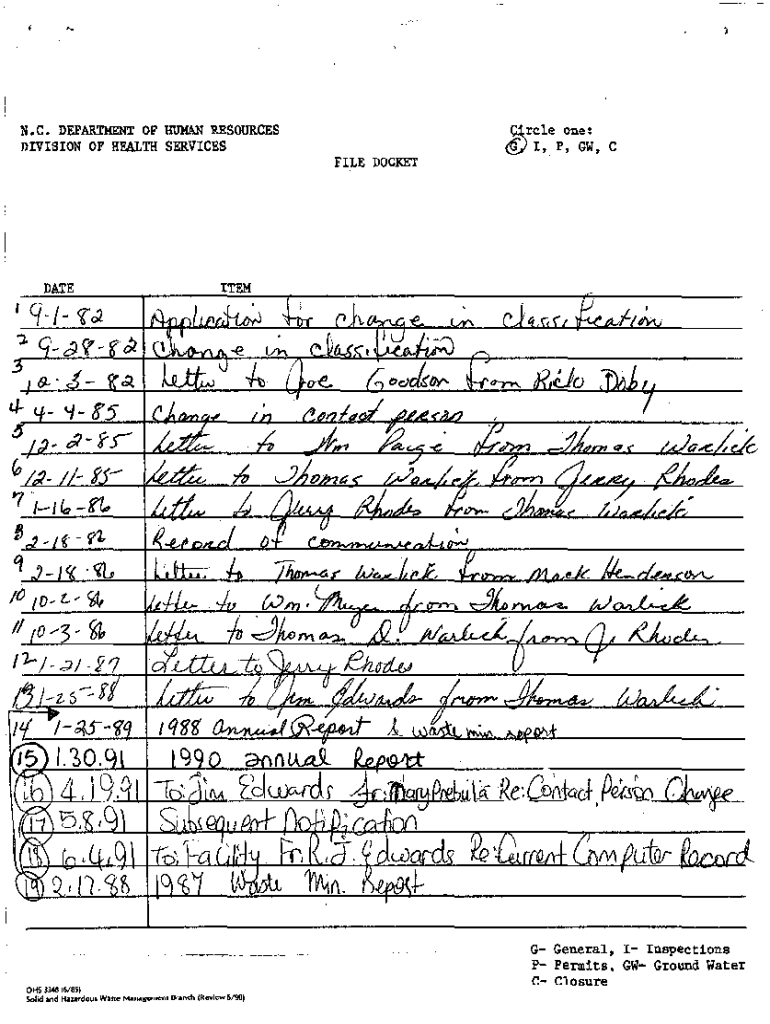 N.C. DEPARTMENT OF HUMAN RESOURCES
DIVISION OF HEALTH SERVICES
Circle one:
G, I, P, GW, C
FILE DOCKET
DATE ITEM
1 9-1-82 Application for change in classification
2 9-28-82 Change in classification
3 12-3-82 Letter to Joe Goodson from Rick Doby
4 4-4-85 Change in contact person
5 12-2-85 Letter to Wm Paige from Thomas Warlick
6 12-11-85 Letter to Thomas Warlick from Jerry Rhodes
7 1-16-86 Letter to Jerry Rhodes from Thomas Warlick
8 2-18-86 Record of communication
9 2-18-86 Letter to Thomas Warlick from Mack Henderson
10 10-2-86 Letter to Wm. Meyer from Thomas Warlick
11 10-3-86 Letter to Thomas D. Warlick from J. Rhodes
12 1-21-87 Letter to Jerry Rhodes
13 1-25-88 Letter to Jim Edwards from Thomas Warlick
14 1-25-89 1988 Annual Report & waste min report
15 1.30.91 1990 annual Report
16 4.19.91 To: Jim Edwards fr: Mary Prebula Re: Contact Person Change
17 5.8.91 Subsequent Notification
18 6.4.91 To: Facility Fr. R.J. Edwards Re: Current Computer Record
19 2.17.88 1987 Waste Min. Report
G- General, I- Inspections
P- Permits, GW- Ground Water
C- Closure
DHS 3348 (6/85)
Solid and Hazardous Waste Management Branch (Review 6/90)